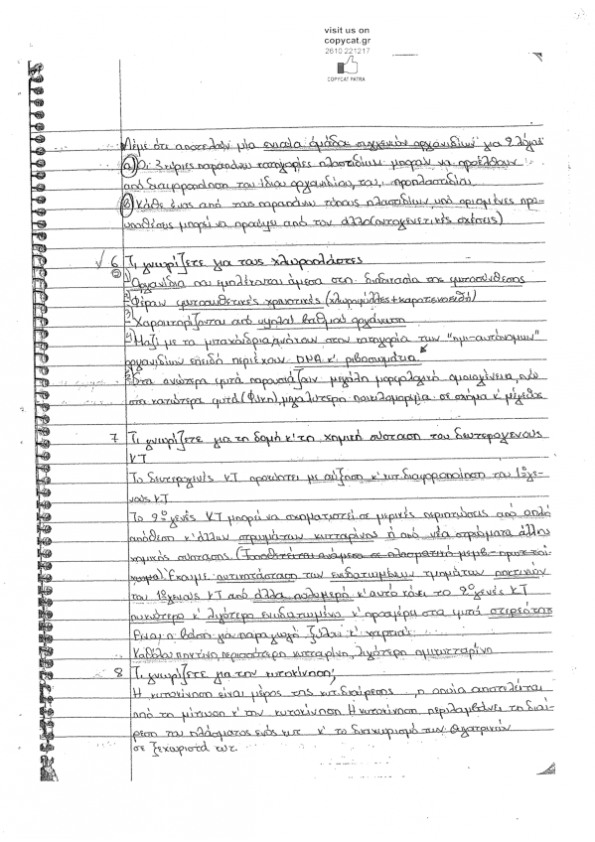 visit us on
copycat.gr
2610 221217
COPYCAT PATRA
Λέμε ότι αποτελούν μία ενιαία ομάδα συγγενικών οργανιδίων για 2 λόγους
α) Οι 3 κύριες παραπάνω κατηγορίες πλαστιδίων μπορούν να προέλθουν
από διαφοροποίηση του ίδιου οργανιδίου, του προπλαστιδίου
β) Κάθε ένας από τους παραπάνω τύπους πλαστιδίων, υπό ορισμένες προ
υποθέσεις μπορεί να προκύψει από τον άλλο (οντογενετικές σχέσεις)
6 Τι γνωρίζετε για τους χλωροπλάστες
1) Οργανίδια που εμπλέκονται άμεσα στη διαδικασία της φωτοσύνθεσης
2) Φέρουν φωτοσυνθετικές χρωστικές (χλωροφύλλες + καροτενοειδή)
3) Χαρακτηρίζονται από υψηλού βαθμού οργάνωση
4) Μαζί με τα μιτοχόνδρια, ανήκουν στην κατηγορία των "ημι-αυτόνομων"
οργανιδίων επειδή περιέχουν DNA κ' ριβοσωμάτια
5) Στα ανώτερα φυτά παρουσιάζουν μεγάλη μορφολογική ομοιογένεια, ενώ
στα κατώτερα φυτά (φύκη), μεγαλύτερη ποικιλομορφία σε σχήμα κ' μέγεθος
7 Τι γνωρίζετε για τη δομή κ' τη χημική σύσταση του δευτερογενούς
ΚΤ
Το δευτερογενές ΚΤ προκύπτει με αύξηση κ' διαφοροποίηση του 1ογε
νούς ΚΤ
Το 2ογενές ΚΤ μπορεί να σχηματιστεί σε μερικές περιπτώσεις από απλή
απόθεση κ' άλλων στρωμάτων κυτταρίνης ή από νέα στρώματα άλλης
χημικής σύστασης (Τοποθετείται ανάμεσα σε πλασματική μεμβ-πρωτ τοί
χωμα) Έχουμε αντικατάσταση των ενυδατωμένων τμημάτων πηκτινών
του 1ογενούς ΚΤ από άλλα πολυμερή κ' αυτό κάνει το 2ογενές ΚΤ
πυκνότερο κ' λιγότερο ενυδατωμένο κ' προσφέρει στα φυτά στερεότητα
Είναι η βάση για παραγωγή ξύλου κ' χαρτιού
Καθόλου πηκτίνη, περισσότερη κυτταρίνη, λιγότερη ημικυτταρίνη
8 Τι γνωρίζετε για την κυτοκίνηση;
Η κυτοκίνηση είναι μέρος της κυτ. διαίρεσης, η οποία αποτελείται
από τη μίτωση κ' την κυτοκίνηση Η κυτοκίνηση περιλαμβάνει τη διαί
ρεση του πλάσματος ενός κυτ κ' το διαχωρισμό των θυγατρικών
σε ξεχωριστά κυτ